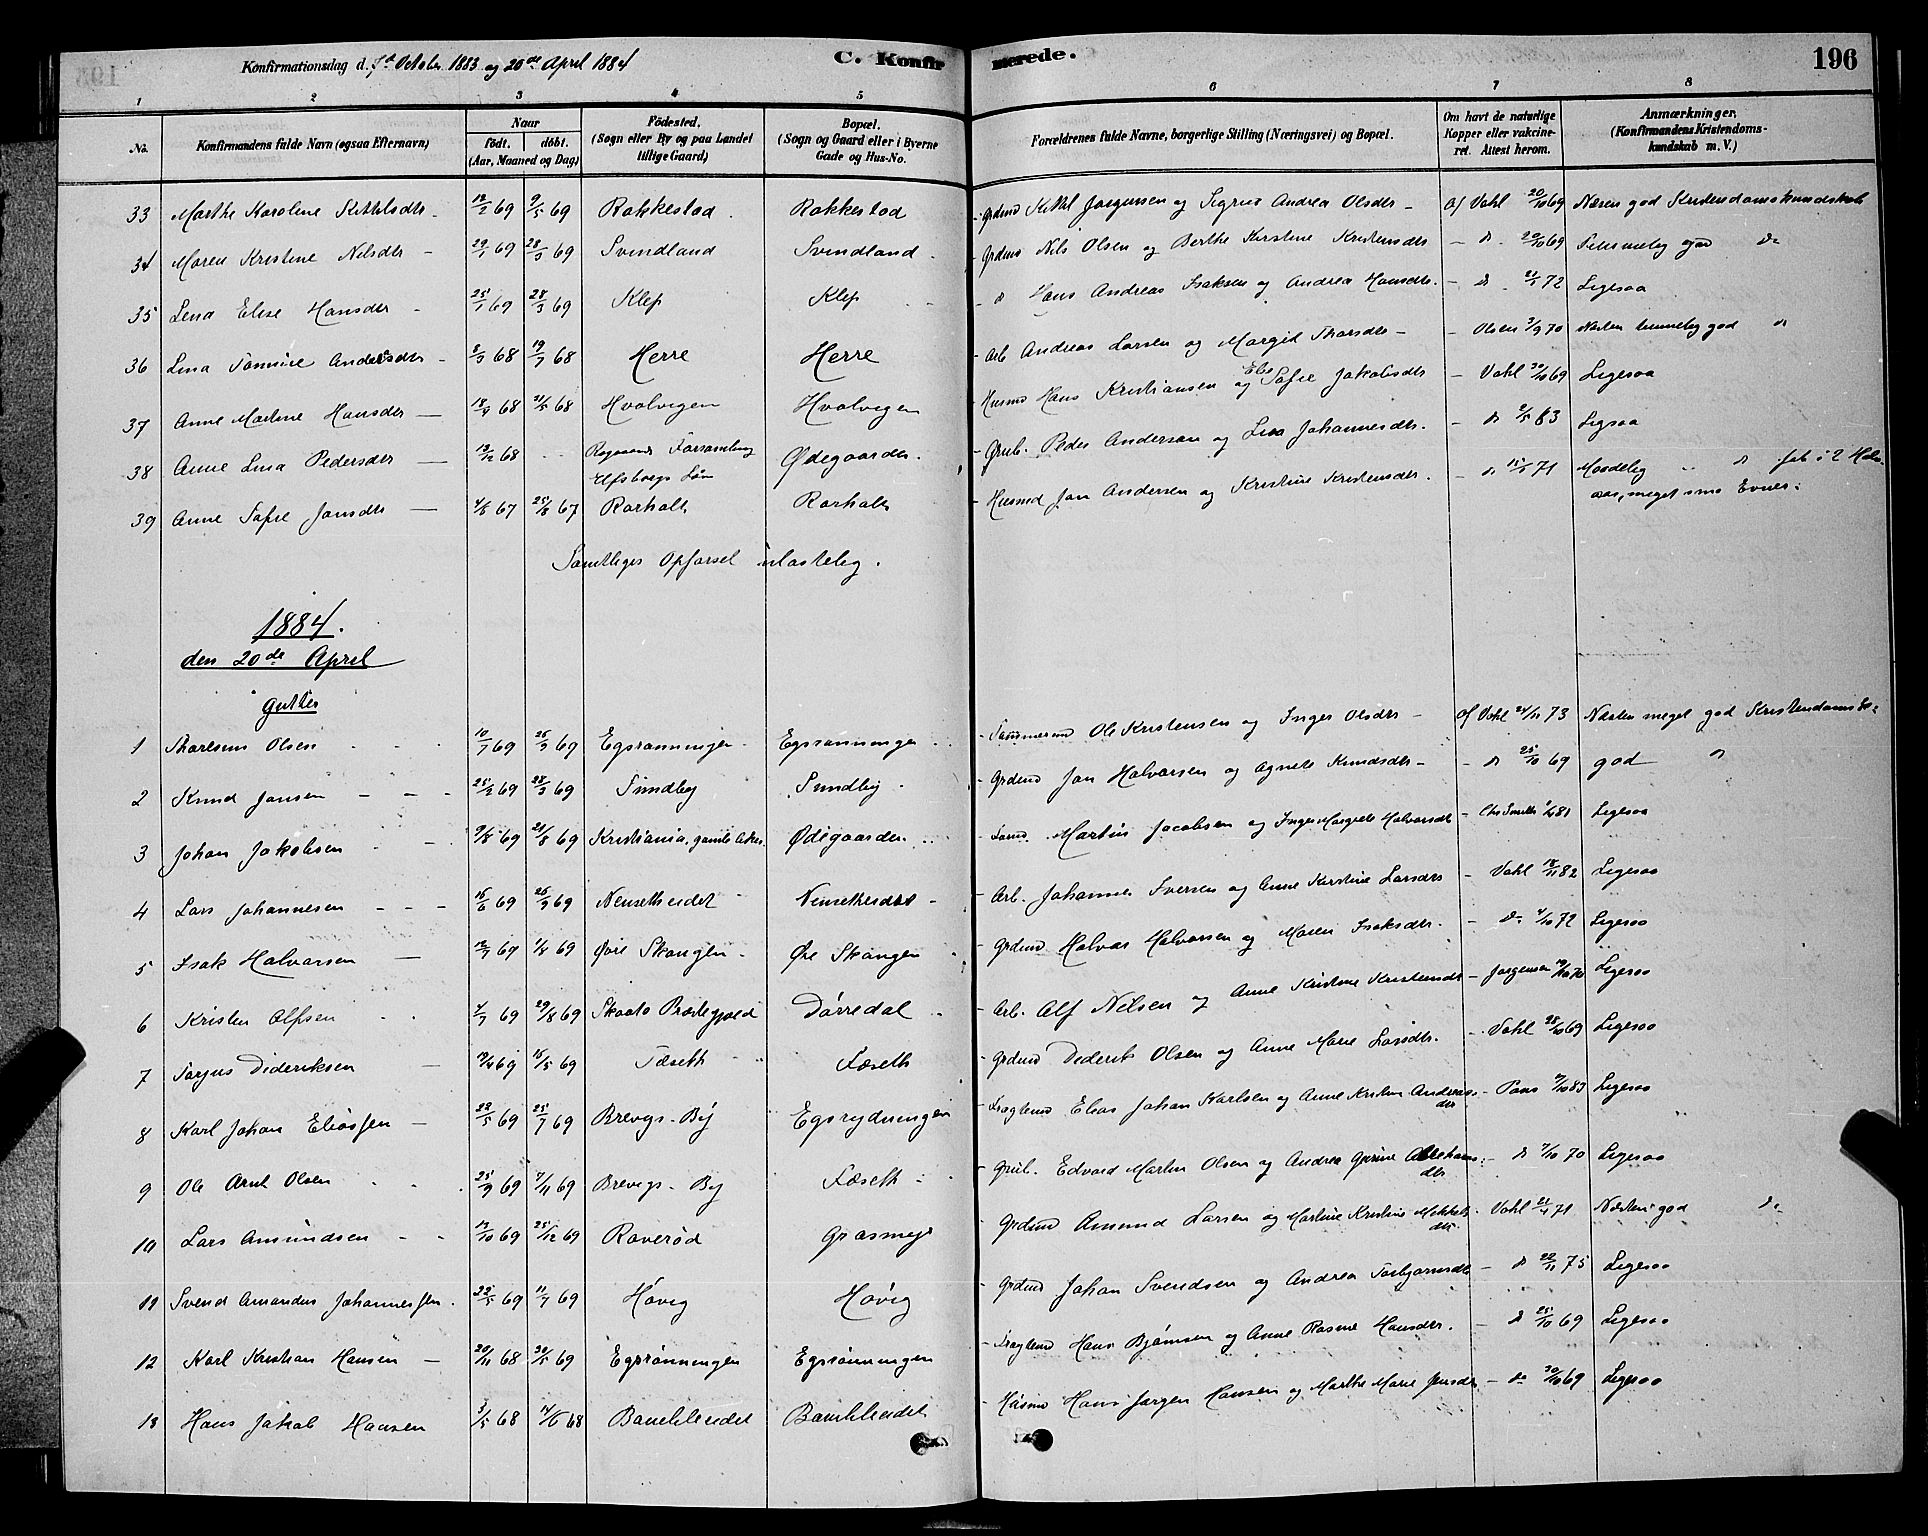 Konfirmationsdag d. 7de October 1883 og 20de April 1884
C. Konfirmerede.
196
1 2 3 4 5 6 7 8
No. Konfirmandens fulde Navn (ogsaa Efternavn) Naar födt. döbt. (Aar, Maaned og Dag) Födested. (Sogn eller By og paa Landet tillige Gaard) Bopæl. (Sogn og Gaard eller i Byerne Gade og Hus-No. Forældrenes fulde Navne, borgerlige Stilling (Næringsvei) og Bopæl. Om havt de naturlige Kopper eller vakcineret. Attest herom. Anmærkninger. (Konfirmandens Kristendomskundskab m. V.)
33 Marthe Karoline Kittilsdtr 12/2 69 9/5 69 Rakkestad Rakkestad Grdmd Kittil Jørgensen og Sigrid Andrea Olsdtr af Vahl 20/10 69 Næsten god Kristendomskundskab
34 Maren Kristine Nilsdtr 29/1 69 28/3 69 Svindland Svindland Grdmd Nils Olsen og Berthe Kirstine Kristensdtr 20/10 69 Temmelig god do
35 Lena Elise Hansdtr 25/1 69 28/3 69 Klep Klep do Hans Andreas Isaksen og Andrea Hansdtr do 21/5 72 Ligesaa
36 Lina Tomine Andersdtr 8/3 68 19/7 68 Herre Herre Arb. Andreas Larsen og Margit Thorsdtr Olsen 3/9 70 Næsten temmelig god do
37 Anne Marline Hansdtr 18/4 68 31/5 68 Hvalvigen Hvalvigen Husmd Hans Kristiansen og Else Sofie Jakobsdtr Vahl 30/10 69 Ligesaa
38 Anne Lina Pedersdtr 19/12 68 Forsamling Elfsborgs Län Ødegaarden Grub. Peder Andersen og Lisa Johannesdtr do 2/5 83 Ligesaa
39 Anne Sofie Jansdtr 4/6 67 25/8 67 Rørholt Rørholt Husmd Jan Andersen og Kristine Kristensdtr do 15/5 71 Maadelig do i 2 Halvaar, meget smaa Evner.
Samtliges Opførsel ulastelig.
1884.
den 20de April
Gutter
1 Olsen 10/7 69 26/9 69 Egsrønningen Egsrønningen Tømmermd Ole Kristensen og Inger Olsdtr af Vahl 24/11 73 Næsten meget god Kristendomsk.
2 Knud Jansen 25/2 69 28/3 69 Sundby Sundby Grdmd Jan Halvorsen og Agnete Knudsdtr do 25/10 69 god do
3 Johan Jakobsen 9/5 69 29/8 69 Kristiania, gamle Aker Ødegaarden Martin Jacobsen og Inger Margrete Halvorsdtr Chr Smith 81 Ligesaa
4 Lars Johannesen 15/6 69 26/9 69 Nensetheidet Nensetheidet Arb. Johannes Iversen og Anne Kirstine Larsdtr Vahl 18/11 82 Ligesaa
5 Isak Halvorsen 12/7 69 1/8 69 Øvre Skougen Øvre Skougen Grdmd Halvor Halvorsen og Maren Isaksdtr do 4/10 72 Ligesaa
6 Kristen Alfsen 4/7 69 29/8 69 Skaatø Præstegjæld Dørredal Arb. Alf Nilsen og Anne Kristine Kristensdtr Jørgensen 19/10 70 Ligesaa
7 Torjus Dideriksen 19/4 69 15/5 69 Fæseth Fæseth Grdmd Diderik Olsen og Anne Marie Larsdtr. Vahl 28/10 69 Ligesaa
8 Karl Johan Eliassen 22/5 69 25/7 69 Brevigs By Egsrydningen Elias Johan Karlsen og Anne Kristine Andreasdtr Paus 83 Ligesaa
9 Ole Arnt Olsen 25/9 69 7/11 69 Brevigs By Fæseth Grub. Edvard Martin Olsen og Andrea Gurine Abrahamsdtr do 7/10 70 Ligesaa
10 Lars Amundsen 13/10 69 25/12 69 Raverød Grasmyr Grdmd Amund Larsen og Martine Kristine Mekkelsdtr Vahl 21/4 71 Næsten god do
11 Svend Amandus Johannessen 22/5 69 11/7 69 Høvig Høvig Grdmd Johan Svendsen og Andrea Torbjørnsdtr do 22/11 75 Ligesaa
12 Karl Kristian Hansen 20/11 68 30/5 69 Egsrønningen Egsrønningen Hans Bjørnsen og Anne Rasme Hansdtr. do 25/10 69 Ligesaa
13 Hans Jakob Hansen 3/5 68 14/6 68 Bambleeidet Bambleeidet Husmd Hans Jørgen Hansen og Marthe Marie Jensdtr do 30/10 69 Ligesaa